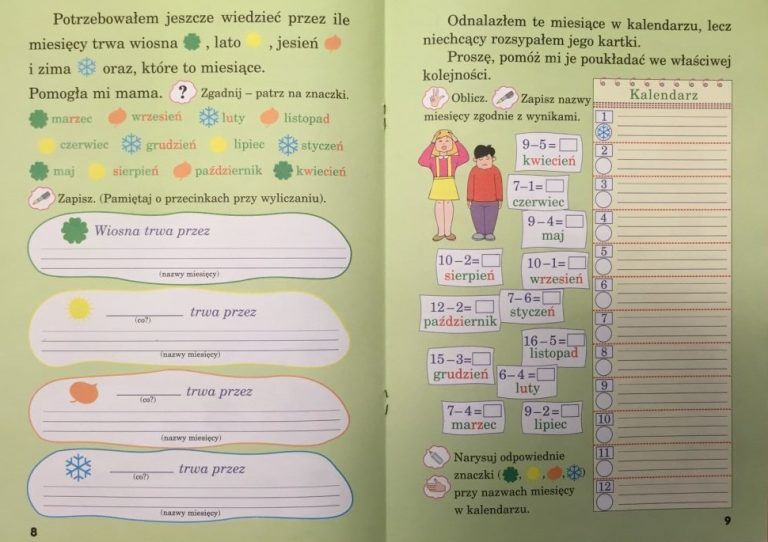 Potrzebowałem jeszcze wiedzieć przez ile
miesięcy trwa wiosna , lato , jesień
i zima oraz, które to miesiące.
Pomogła mi mama. ? Zgadnij – patrz na znaczki.
marzec wrzesień luty listopad
czerwiec grudzień lipiec styczeń
maj sierpień październik kwiecień
Zapisz. (Pamiętaj o przecinkach przy wyliczaniu).
Wiosna trwa przez
(nazwy miesięcy)
trwa przez
(co?)
(nazwy miesięcy)
trwa przez
(co?)
(nazwy miesięcy)
trwa przez
(co?)
(nazwy miesięcy)
8
Odnalazłem te miesiące w kalendarzu, lecz
niechcący rozsypałem jego kartki.
Proszę, pomóż mi je poukładać we właściwej
kolejności.
Oblicz. Zapisz nazwy
miesięcy zgodnie z wynikami.
9–5=
kwiecień
7–1=
czerwiec
9–4=
maj
10–2=
sierpień
10–1=
wrzesień
12–2=
październik
7–6=
styczeń
16–5=
listopad
15–3=
grudzień
6–4=
luty
7–4=
marzec
9–2=
lipiec
Narysuj odpowiednie
znaczki ( , , , )
przy nazwach miesięcy
w kalendarzu.
Kalendarz
1
2
3
4
5
6
7
8
9
10
11
12
9